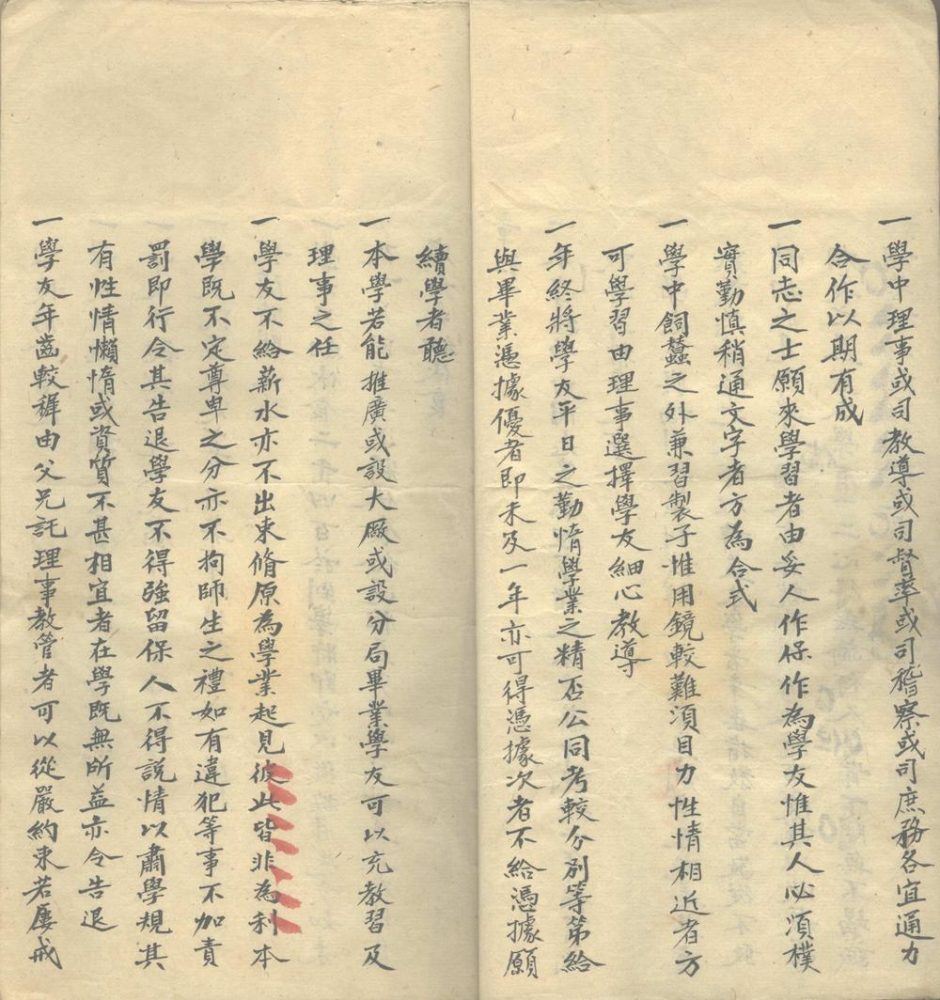 一學中理事或司教導或司督率或司稽察或司庶務各宜通力
合作以期有成
一同志之士願來學習者由妥人作保作為學友惟其人必須樸
實勤慎稍通文字者方為合式
一學中飼蠶之外兼習製子惟用鏡較難須目力性情相近者方
可學習由理事選擇學友細心教導
一年終將學友平日之勤惰學業之精否公同考較分別等第給
與畢業憑據優者即未及一年亦可得憑據次者不給憑據願
續學者聽
一本學若能推廣或設大厰或設分局畢業學友可以充教習及
理事之任
一學友不給薪水亦不出束脩原為學業起見彼此皆非為利本
學既不定尊卑之分亦不拘師生之禮如有違犯等事不加責
罰即行令其告退學友不得強留保人不得説情以肅學規其
有性情懶惰或資質不甚相宜者在學既無所益亦令告退
一學友年齒較穉由父兄託理事教管者可以從嚴約束若屢戒